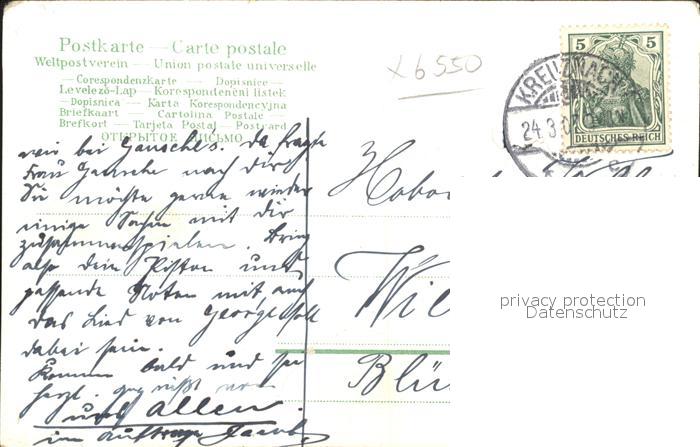 Postkarte — Carte postale
Weltpostverein — Union postale universelle
Corespondenzkarte — Dopisnice
Levelező-Lap — Korespondenční listek
Dopisnica — Karta Korespondencyjna
Briefkaart — Cartolina Postale
Brefkort — Tarjeta Postal — Postcard
ОТКРЫТОЕ ПИСЬМО
x6550
5 5
DEUTSCHES REICH
KREUZNACH
24.3.0
wir bei Da fragte
Frau nach dir
Sie möchte gerne wieder
einige Sachen mit dir
zusammenspielen. Bring
also dein Piston und
passende Noten mit, auch
das Lied von George soll
dabei sein.
Komme bald und sei
herzl. gegrüßt von
uns allen.
im Auftrage Jacob
Wie
Blü
privacy protection
Datenschutz